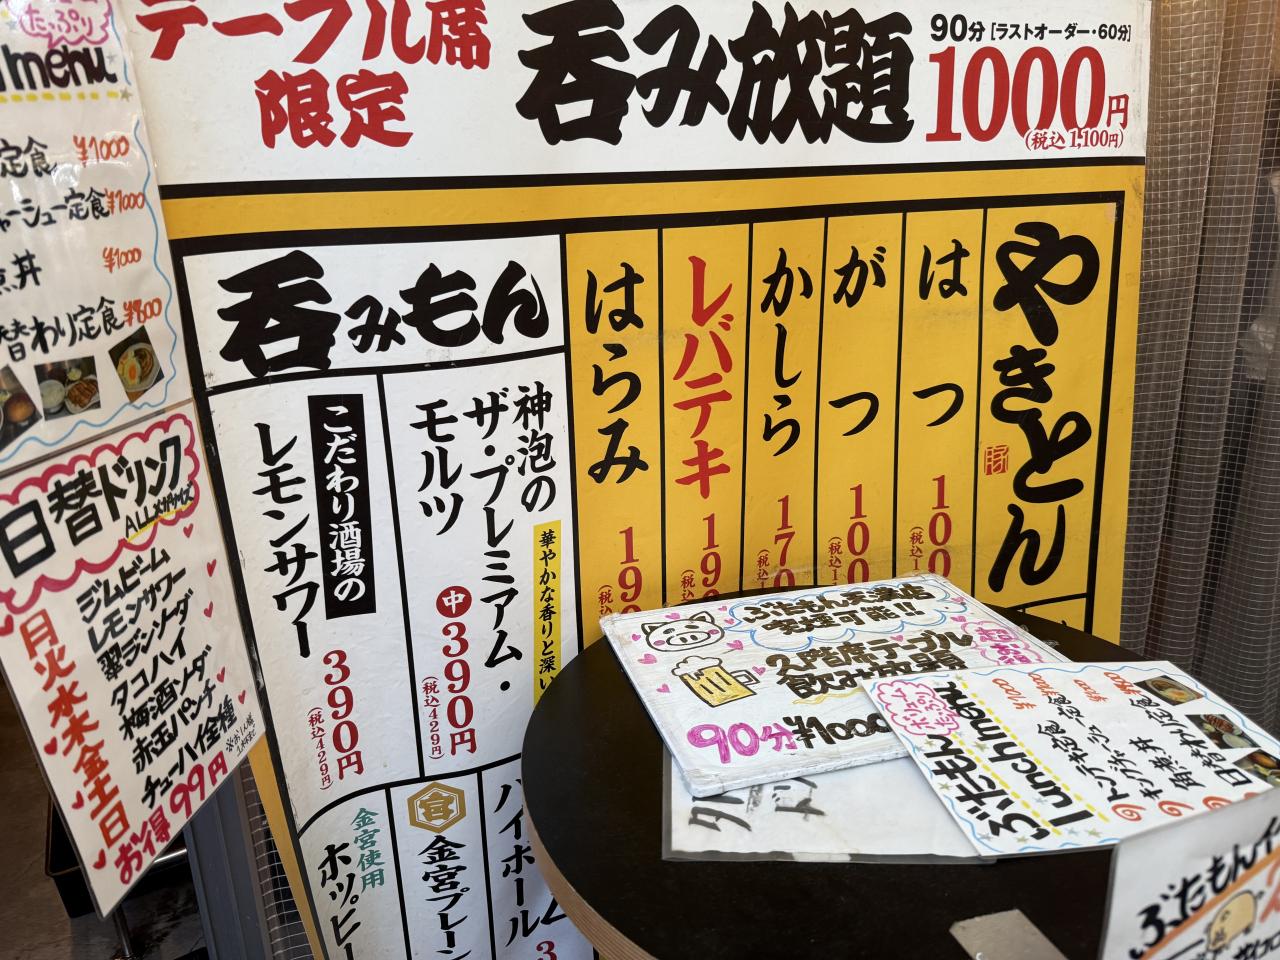 テーブル席
限定
呑み放題
90分 [ラストオーダー・60分]
1000円
(税込 1,100円)
やきとん
はつ
100
がつ
100
(税込1
かしら
170
(税込1
レバテキ
190
(税込
はらみ
190
(税込
呑みもん
神泡の
ザ・プレミアム・
モルツ
華やかな香りと深い
中390円
(税込429円)
こだわり酒場の
レモンサワー
390円
(税込429円)
金宮使用
ホッピー
宮
金宮プレーン
ハイボール
3
たっぷり
menu
定食 ¥1000
ャーシュー定食 ¥1000
丼 ¥1000
替わり定食 ¥800
日替ドリンク
ALLメガサイズ
月 ジムビーム
火 レモンサワー
水 翠ジンソーダ
木 タコハイ
金 梅酒ソーダ
土 赤玉パンチ
日 チューハイ全種
お得 99円
ぶたもん
喫煙可能!!
2階席テーブル
飲み放題
90分 ¥1000
ボリューム
たっぷり
ぶたもん
lunch menu
日替わり定食 ¥800
ぶたもん